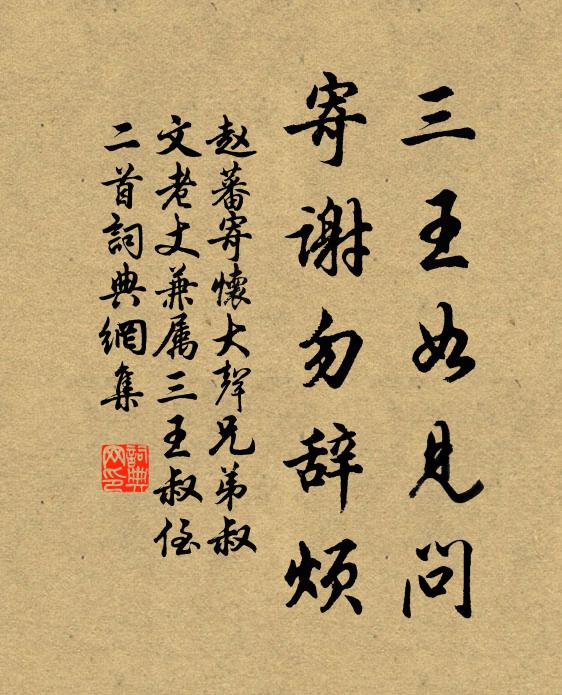 三王如見問
寄谢勿辞烦
赵蕃寄懷大聲兄弟叔
文老丈兼属三王叔侄
二首詞典網集
詞典网印